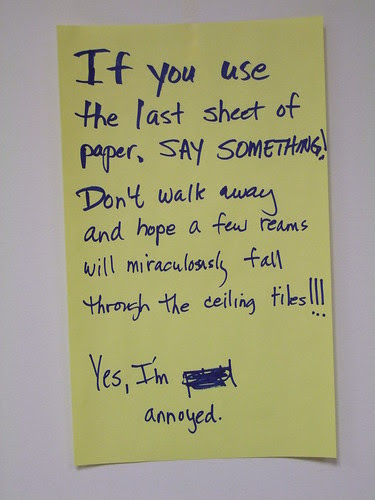 If you use
the last sheet of
paper, SAY SOMETHING!
Don't walk away
and hope a few reams
will miraculously fall
through the ceiling tiles!!!
Yes, I'm
annoyed.